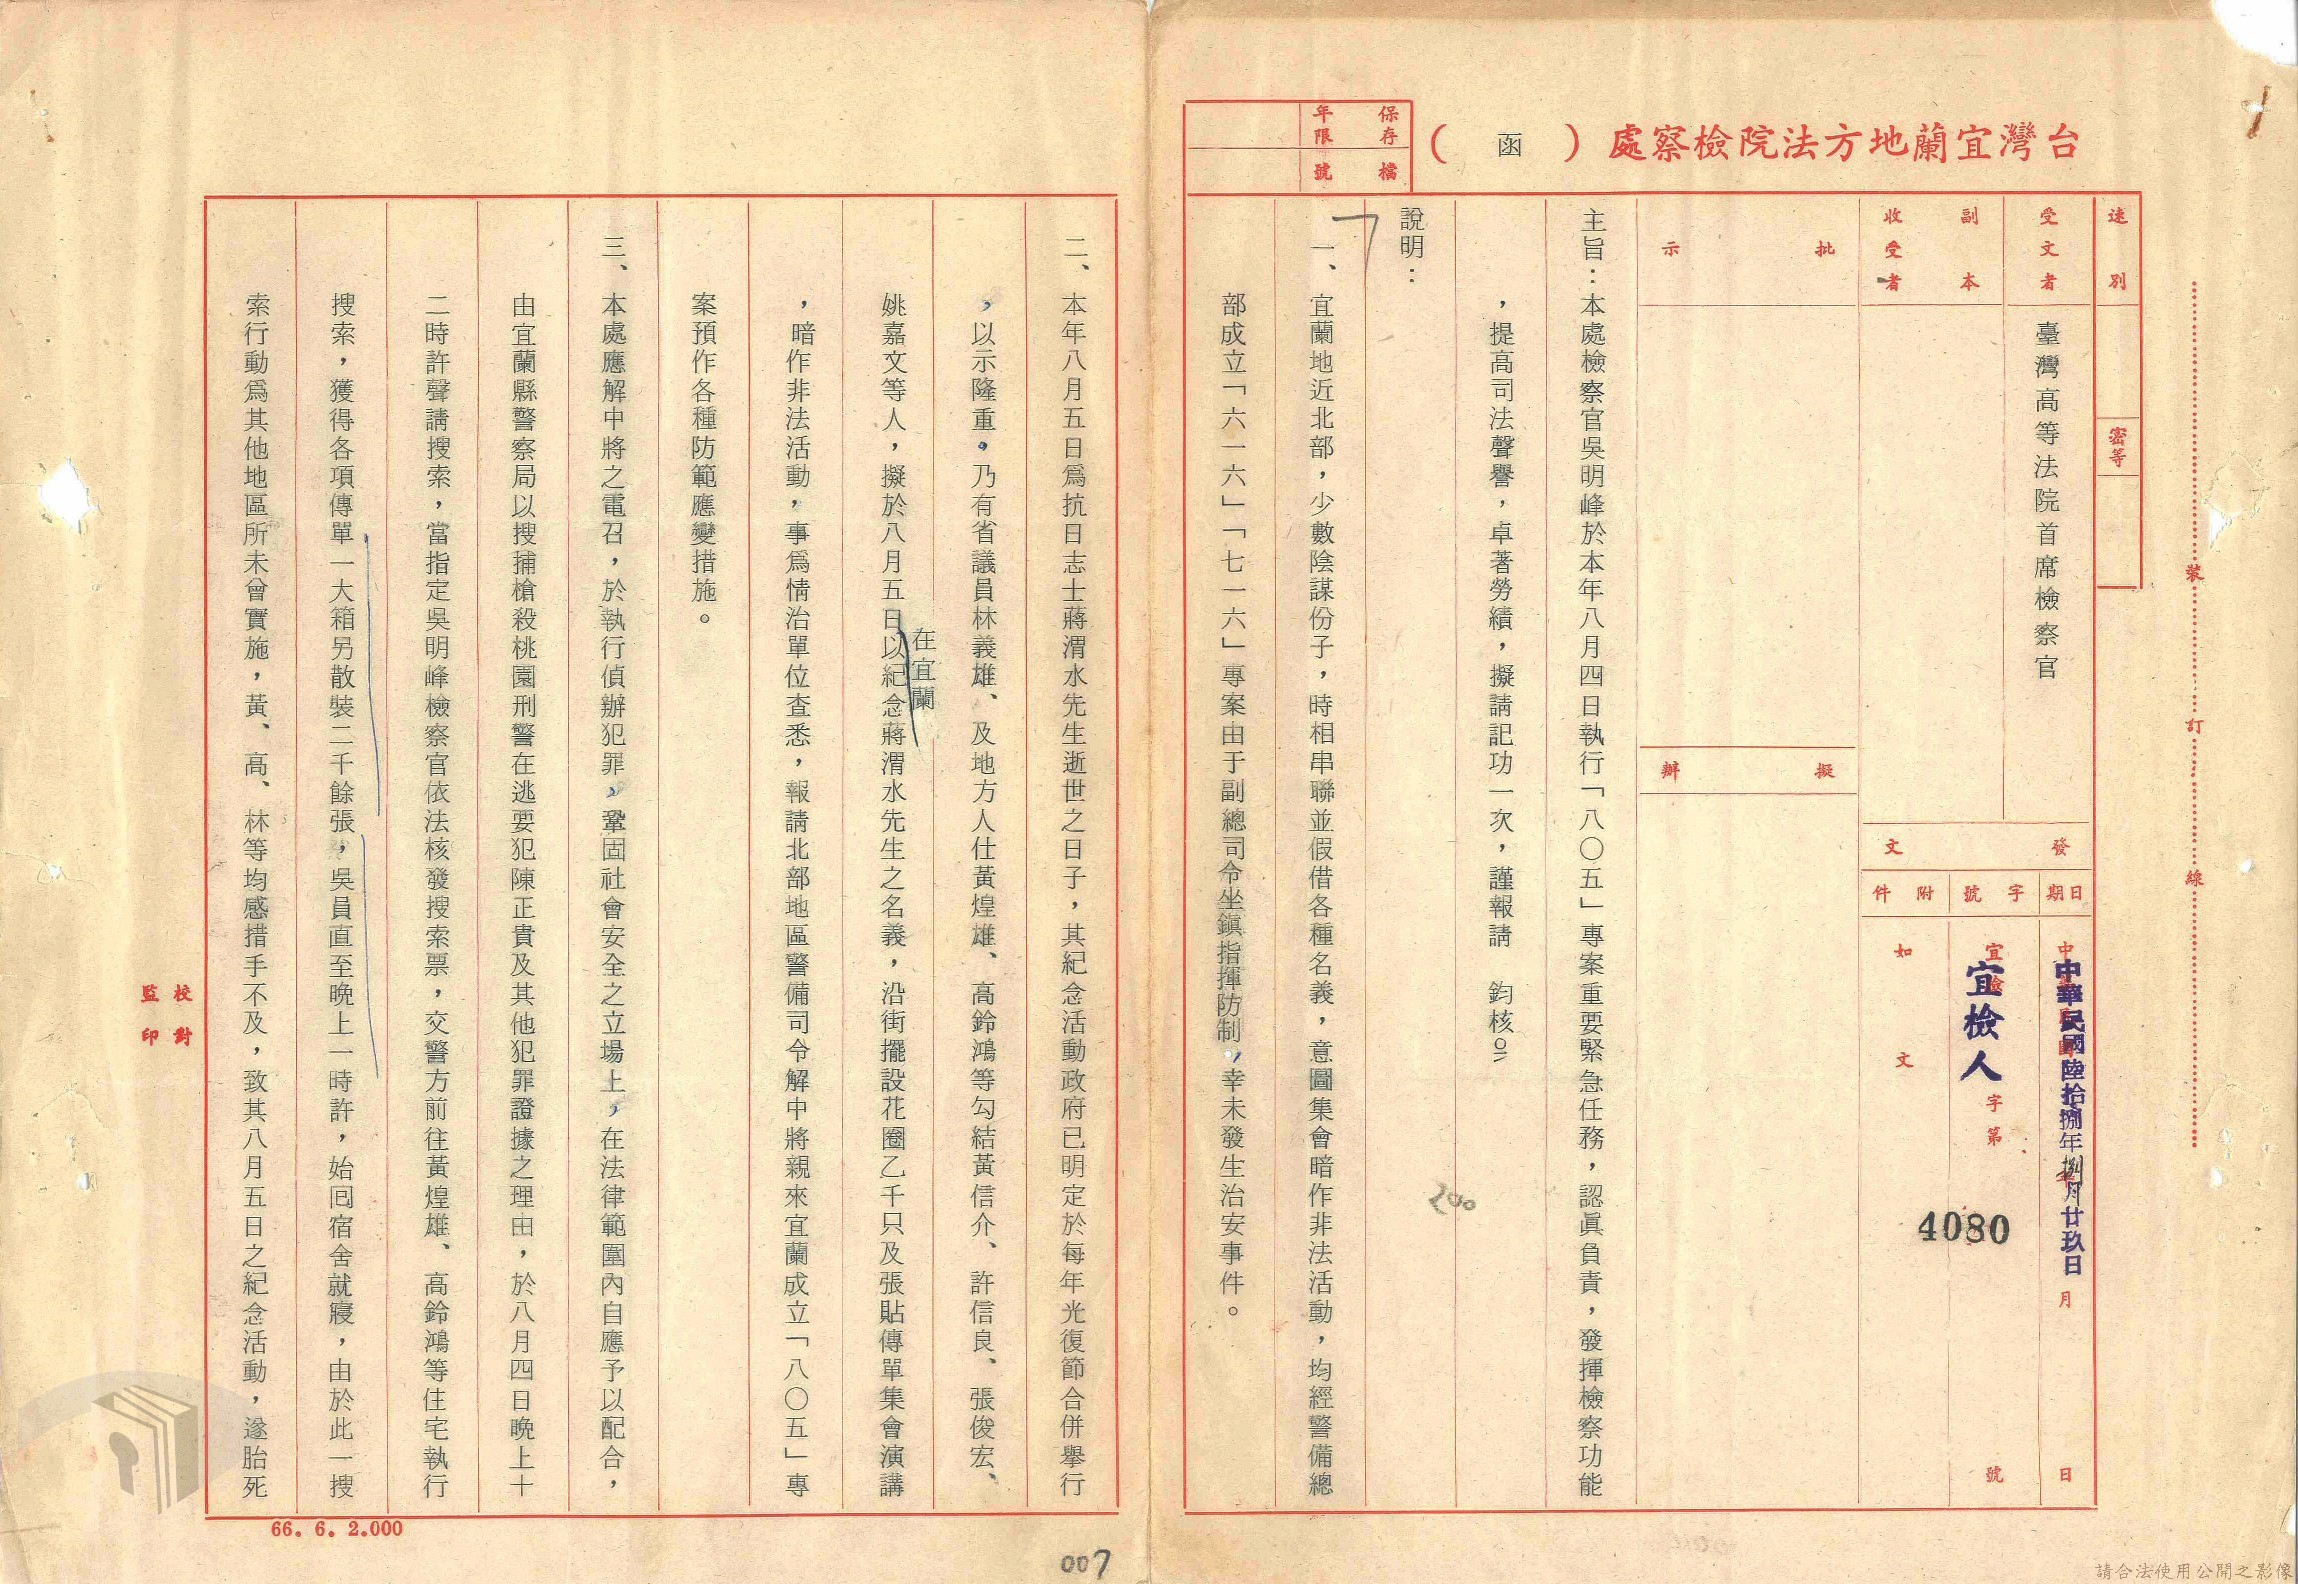 台灣宜蘭地方法院檢察處（函）
保存年限
檔號
速別
密等
受文者
臺灣高等法院首席檢察官
副本收受者
發文
日期
中華民國陸拾捌年捌月廿玖日
字號
宜檢人
字第
4080
號
附件
如文
批示
擬辦
主旨：本處檢察官吳明峰於本年八月四日執行「八〇五」專案重要緊急任務，認眞負責，發揮檢察功能
，提高司法聲譽，卓著勞績，擬請記功一次，謹報請　鈞核。
說明：
一、宜蘭地近北部，少數陰謀份子，時相串聯並假借各種名義，意圖集會暗作非法活動，均經警備總
部成立「六一六」「七一六」專案由于副總司令坐鎭指揮防制，幸未發生治安事件。
二、本年八月五日爲抗日志士蔣渭水先生逝世之日子，其紀念活動政府已明定於每年光復節合併舉行
，以示隆重。乃有省議員林義雄、及地方人仕黃煌雄、高鈴鴻等勾結黃信介、許信良、張俊宏、
姚嘉文等人，擬於八月五日在宜蘭以紀念蔣渭水先生之名義，沿街擺設花圈乙千只及張貼傳單集會演講
，暗作非法活動，事爲情治單位查悉，報請北部地區警備司令解中將親來宜蘭成立「八〇五」專
案預作各種防範應變措施。
三、本處應解中將之電召，於執行偵辦犯罪，鞏固社會安全之立場上，在法律範圍內自應予以配合，
由宜蘭縣警察局以搜捕槍殺桃園刑警在逃要犯陳正貴及其他犯罪證據之理由，於八月四日晚上十
二時許聲請搜索，當指定吳明峰檢察官依法核發搜索票，交警方前往黃煌雄、高鈴鴻等住宅執行
搜索，獲得各項傳單一大箱另散裝二千餘張，吳員直至晚上一時許，始囘宿舍就寢，由於此一搜
索行動爲其他地區所未曾實施，黃、高、林等均感措手不及，致其八月五日之紀念活動，遂胎死
裝
訂
線
校對
監印
66. 6. 2.000
007
請合法使用公開之影像